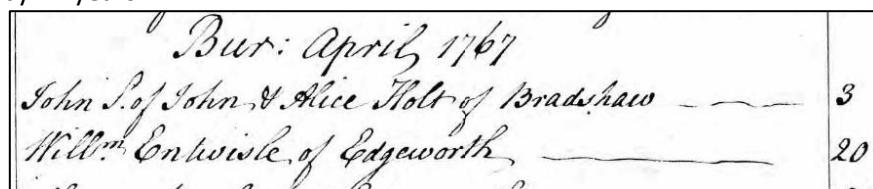 Bur: April 1767
John S. of John & Alice Holt of Bradshaw 3
Willm Entwisle of Edgeworth 20